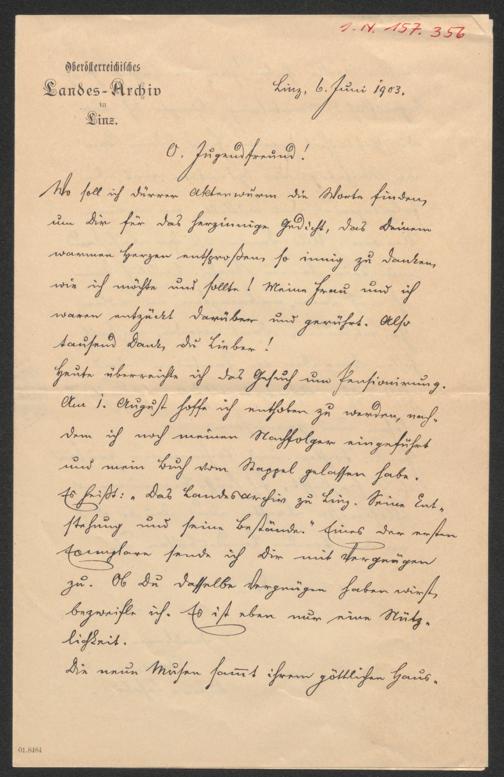 I. N. 157.356
Oberösterreichisches
Landes-Archiv
in
Linz.
Linz, 6. Juni 1903.
O, Jugendfreund!
Wo soll ich dürrer Aktenwurm die Worte finden,
um Dir für das herzinnige Gedicht, das Deinem
warmen Herzen entsproßen, so innig zu danken,
wie ich möchte und sollte! Meine Frau und ich
waren entzückt darüber und gerührt. Also
tausend Dank, Du Lieber!
Heute überreichte ich das Gesuch um Pensionirung.
Am 1. August hoffe ich enthoben zu werden, nach-
dem ich noch meinen Nachfolger eingeführt
und mein Buch vom Stappel gelassen habe.
Es heißt: „Das Landesarchiv zu Linz. Seine Ent-
stehung und seine Bestände." Eines der ersten
Exemplare sende ich Dir mit Vergnügen
zu. Ob Du dasselbe Vergnügen haben wirst,
bezweifle ich. Es ist eben nur eine Nütz-
lichkeit.
Die neun Musen sammt ihrem göttlichen Haus-
01.8484